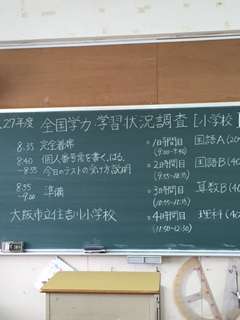 27年度 全国学力・学習状況調査 [小学校
8:35 完全着席
8:40 個人番号を書く、はる。
-8:55 今日のテストの受け方説明
8:55
-9:00 準備
大阪市立住吉川小学校
1時間目 国語A(20
(9:00-9:20)
2時間目 国語B(40
3時間目 算数B(40
4時間目 理科(40
(11:50-12:30)